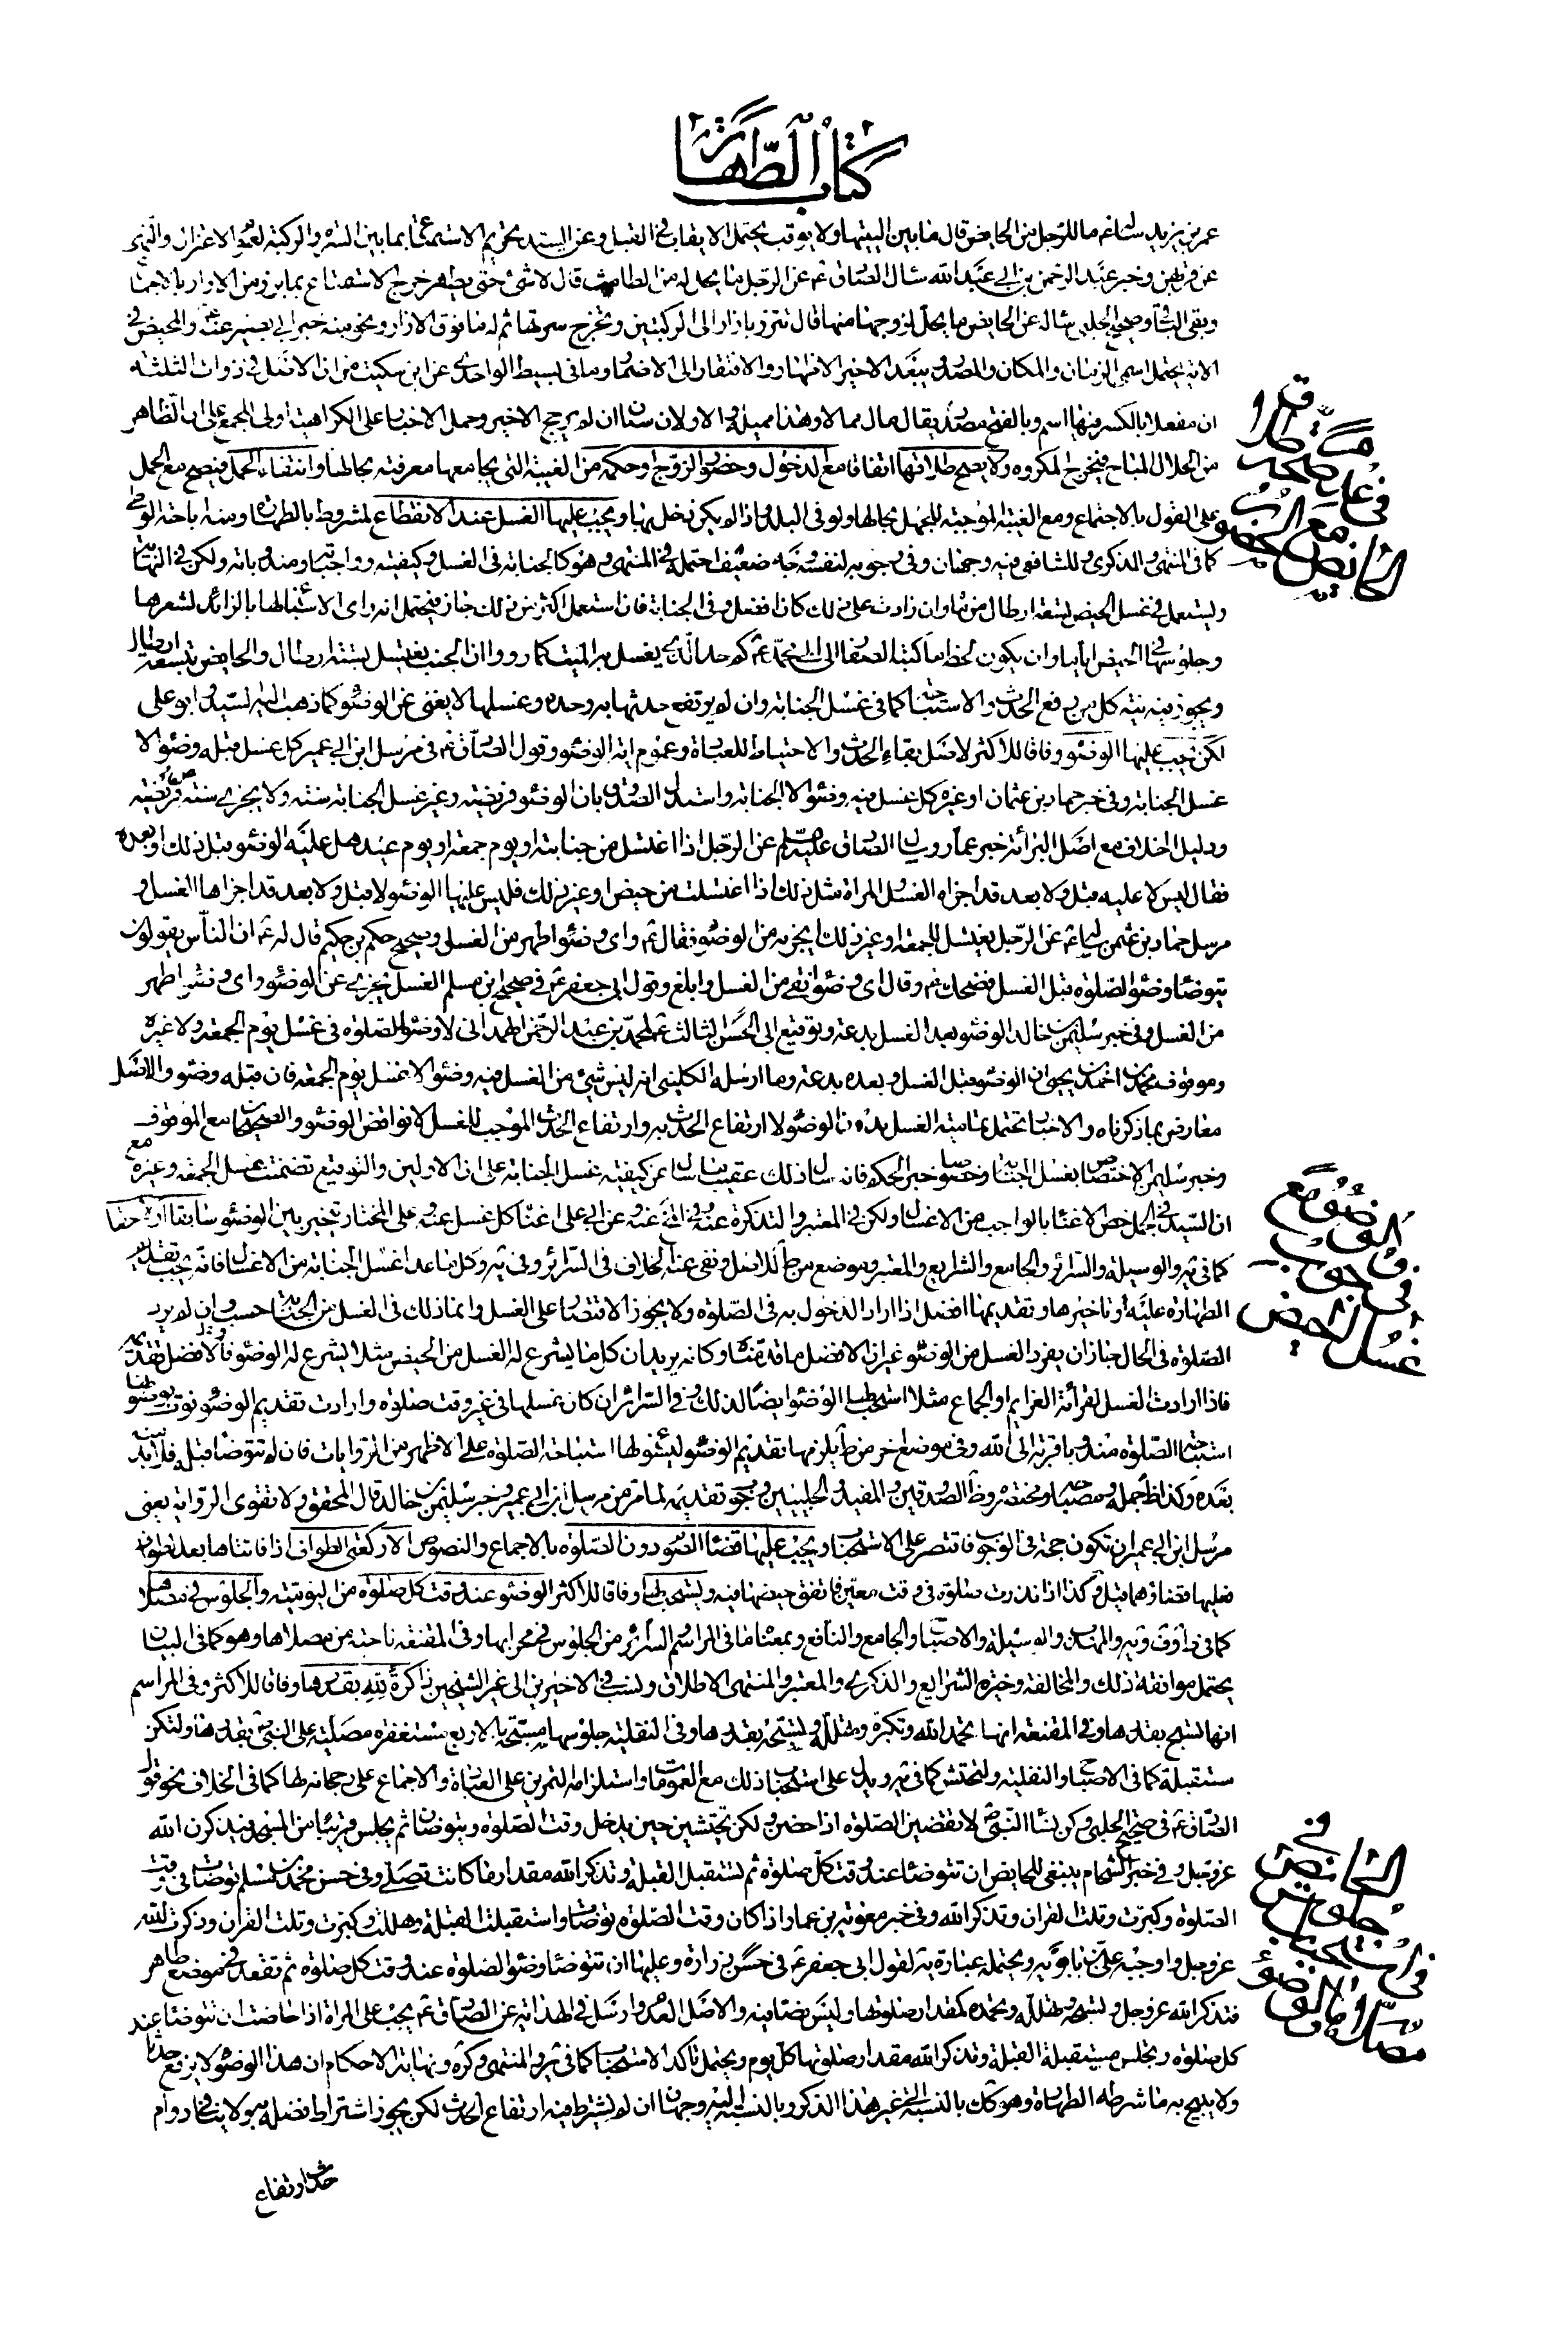 كتاب الطهارة
عمر بن يزيد سأله ع ما للرجل من الحايض قال ما بين اليتيها ولا يوقب يحتمل الايقاب في القبل وعن السيد تحريم الاستمتاع بما بين السرة والركبة لعموم الاعتزال والنهى
عن قربهن وخبر عبد الرحمن بن ابي عبد الله سال الصادق ع عن الرجل ما يحل له من الطامث قال لا شئ حتى يطهر خرج الاستمتاع بما برز من الازار بالاجماع
وبقى الباقي وصحيح الحلبي ساله عن الحايض ما يحل لزوجها منها قال تتزر بازار الى الركبتين وتخرج سرتها ثم له ما فوق الازار ونحو منه خبر ابي بصير عنه ع والمحيض في
الاية يحتمل اسم الزمان والمكان والمصدر ويبعد الاخير الاظهار والافتقار الى الاضمار وما في بسيط الواحدي عن ابن سكيت من ان الاصل في ذوات الثلثة
ان مفعلا بالكسر فيها اسم وبالفتح مصدر يقال مال ممالا وهذا مميله والاولان سيان ان لم يرجح الاخير وحمل الاخبار على الكراهية اولى للجمع على ان الظاهر
من الحلال المباح فيخرج المكروه ولا يصح طلاقها اتفاقا مع الدخول وحضور الزوج او حكمه من الغيبة التي يجامعها معرفته بحالها وانتفاء الحمل فيصح مع الحمل
على القول بالاجتماع ومع الغيبة الموجبة للجهل بحالها ولو في البلد واذا لم يكن دخل بها ويجب عليها الغسل عند الانقطاع لمشروط بالطهارة ومنه اباحة الوطي
كما في المنتهى والذكرى وللشافعي فيه وجهان وفي وجوبه لنفسه وجه ضعيف احتمله في المنتهى وهو كالجنابة في الغسل وكيفيته وواجباته ومندوباته ولكن في النهاية
ويستعمل في غسل الحيض تسعة ارطال من ماء وان زادت على ذلك كان افضل وفي الجنابة فان استعمل اكثر من ذلك جاز فيحتمل انه راى الاسباغ لها بالزائد لشعرها
وجلوسها في الحيض اياما وان يكون لحظ ما كتبه الصفار الى ابي محمد ع كم حد الماء الذي يغسل به الميت كما رووا ان الجنب يغتسل بستة ارطال والحايض بتسعة ارطال
ويجوز فيه نية كل من رفع الحدث والاستباحة كما في غسل الجنابة وان لم يرتفع حدثها به وحده وغسلها لا يغنى عن الوضوء كما ذهب اليه السيد وابو على
لكن يجب عليها الوضوء وفاقا للاكثر لاصل بقاء الحدث والاحتياط للعبادة وعموم اية الوضوء وقول الصادق ع في مرسل ابن ابي عمير كل غسل قبله وضوء الا
غسل الجنابة وفي خبر حماد بن عثمان او غيره كل غسل فيه وضوء الا الجنابة واستدل الصدوق بان الوضوء فريضة وغير غسل الجنابة سنة ولا يجزي سنة عن فريضة
ودليل الخلاف مع اصل البرائة خبر عمار وسال الصادق عليه السلم عن الرجل اذا اغتسل من جنابته او يوم جمعة او يوم عيد هل عليه الوضوء قبل ذلك او بعده
فقال ليس لا عليه قبل ولا بعد قد اجزاه الغسل والمراة مثل ذلك اذا اغتسلت من حيض او غير ذلك فليس عليها الوضوء لا قبل ولا بعد قد اجزاها الغسل و
مرسل حماد بن عثمن ساله ع عن الرجل يغتسل للجمعة او غير ذلك ايجزيه من الوضوء فقال ع واي وضوء اطهر من الغسل وصحيح حكم بن حكيم قال له ع ان الناس يقولون
يتوضا وضوء الصلوة قبل الغسل فضحك ع وقال اي وضوء انقى من الغسل وابلغ وقول ابي جعفر ع في صحيح ابن مسلم الغسل يجزي عن الوضوء واى وضوء اطهر
من الغسل وفي خبر سليمن بن خالد الوضوء بعد الغسل بدعة وتوقيع ابي الحسن الثالث ع لمحمد بن عبد الرحمن الهمداني لا وضوء للصلوة في غسل يوم الجمعة ولا غيره
وموقوف محمد بن احمد بن يحيى ان الوضوء قبل الغسل وبعده بدعة وما ارسله الكليني انه ليس شئ من الغسل فيه وضوء الا غسل يوم الجمعة فان قبله وضوء والاصل
معارض بما ذكرناه والاخبار تحتمل تمامية الغسل بدون الوضوء لا ارتفاع الحدث به وارتفاع الحدث الموجب للغسل لا نواقض الوضوء والصحيحان مع الموقوف
وخبر سليمن الاختصاص بغسل الجنابة وخصوصا خبر الحكم فانه سال ذلك عقيب ان سال عن كيفية غسل الجنابة على ان الاولين والتوقيع تضمنت غسل الجمعة وغيره مع
ان السيد في الجمل خص الاغناء بالواجب من الاغسال ولكن في المعتبر والتذكرة عنه وفي عنه وعن ابي على اغناء كل غسل عنه وعلى المختار يتخير بين الوضوء سابقا او لاحقا
كما في يه والوسيلة والسرائر والجامع والشرايع والمعتبر وموضع من ط للاصل ونفى عنه الخلاف في السرائر وفي يه وكل ما عدا غسل الجنابة من الاغسال فانه يجب تقديم
الطهارة عليه او تاخيرها وتقديمها افضل اذا اراد الدخول به في الصلوة ولا يجوز الاقتصار على الغسل وانما ذلك في الغسل من الجنابة حسب وان لم يرد
الصلوة في الحال جاز ان يفرد الغسل من الوضوء غير ان الافضل ما قدمناه وكانه يريد ان كل ما يشرع له الغسل من الحيض مثلا يشرع له الوضوء والافضل تقديمه
فاذا ارادت الغسل لقرائة العزايم او الجماع مثلا استحب لها الوضوء ايضا لذلك وفي السرائر ان كان غسلها في غير وقت صلوة وارادت تقديم الوضوء نوت بوضوئها
استباحة الصلوة مندوبا قربة الى الله وفي موضع اخر من ط يلزمها تقديم الوضوء ليسوغ لها استباحة الصلوة على الاظهر من الروايات فان لم تتوضا قبله فلا بد منه
بعده وكذا ظ جمله ومصباحه ومختصره وظ الصدوقين والمفيد والحلبيين وجوب تقديمه لما مر من مرسل ابن ابي عمير وخبر سليمن بن خالد قال المحقق ولا تقوى الرواية يعنى
مرسل ابن ابي عمير ان تكون حجة في الوجوب فاقتصر على الاستحباب ويجب عليها قضاء الصوم دون الصلوة بالاجماع والنصوص الا ركعتى الطواف اذا فاتتاها بعد تطواف
فعليها قضاؤهما قيل وكذا اذا نذرت صلوة في وقت معين فاتفق حيضها فيه ويستحب لها وفاقا للاكثر الوضوء عند وقت كل صلوة من اليومية والجلوس في مصلاها
كما في ط وف ويه والمهذب والوسيلة والاصباح والجامع والنافع وبمعناه ما في المراسم والسرائر من الجلوس في محرابها وفي المقنعة ناحية من مصلاها وهو كما في البيان
يحتمل موافقة ذلك والمخالفة وخيرة الشرايع والذكرى والمعتبر والمنتهى الاطلاق ونسب في الاخيرين الى غير الشيخين ذاكرة لله بقدرها وفاقا للاكثر وفي المراسم
انها تسبح بقدرها وفي المقنعة انها تحمد الله وتكبره وتهلله وتسبحه بقدرها وفي النفلية جلوسها مسبحة بالاربع مستغفرة مصلية على النبي ص بقدرها ولتكن
مستقبلة كما في الاصباح والنفلية ولتحتش كما في يه ويدل على استحباب ذلك مع العمومات واستلزامه التمرين على العبادة والاجماع على رجحانه لها كما في الخلاف نحو قول
الصادق ع في صحيح الحلبي وكن نساء النبي ص لا تقضين الصلوة اذا حضن ولكن يحتشين حين يدخل وقت الصلوة ويتوضان ثم يجلس قريبا من المسجد فيذكرن الله
عز وجل وفي خبر الشحام ينبغي للحايض ان تتوضا عند وقت كل صلوة ثم تستقبل القبلة وتذكر الله مقدار ما كانت تصلى وفي حسن محمد بن مسلم توضات في وقت
الصلوة وكبرت وتلت القران وتذكر الله وفي خبر معوية بن عمار اذا كان وقت الصلوة توضات واستقبلت القبلة وهللت وكبرت وتلت القران وذكرت الله
عز وجل واوجبه على بن بابويه ويحتمله عبارة يه لقول ابى جعفر ع في حسن زرارة وعليها ان تتوضا وضوء الصلوة عند وقت كل صلوة ثم تقعد في موضع طاهر
فتذكر الله عز وجل وتسبحه وتهلله وتحمده كمقدار صلوتها وليس نصا فيه والاصل العدم وارسل في الهداية عن الصادق ع يجب على المراة اذا حاضت ان تتوضا عند
كل صلوة وتجلس مستقبلة القبلة وتذكر الله مقدار صلوتها كل يوم ويحتمل تاكد الاستحباب كما في يه والمنتهى وكره ونهاية الاحكام ان هذا الوضوء لا يرفع حدثا
ولا يبيح به ما شرطه الطهارة وهو كك بالنسبة الى غير هذا الذكر وبالنسبة اليه وجهان ان لم يشترط فيه ارتفاع الحدث لكن يجوز اشتراط فضله به ولا ينافيه دوام
حدث ارتفاع
في عدم صحة طلاق الحائض مع الحضور
في وجوب الوضوء مع غسل الحيض
في استحباب جلوس الحائض في مصلاها بالوضوء